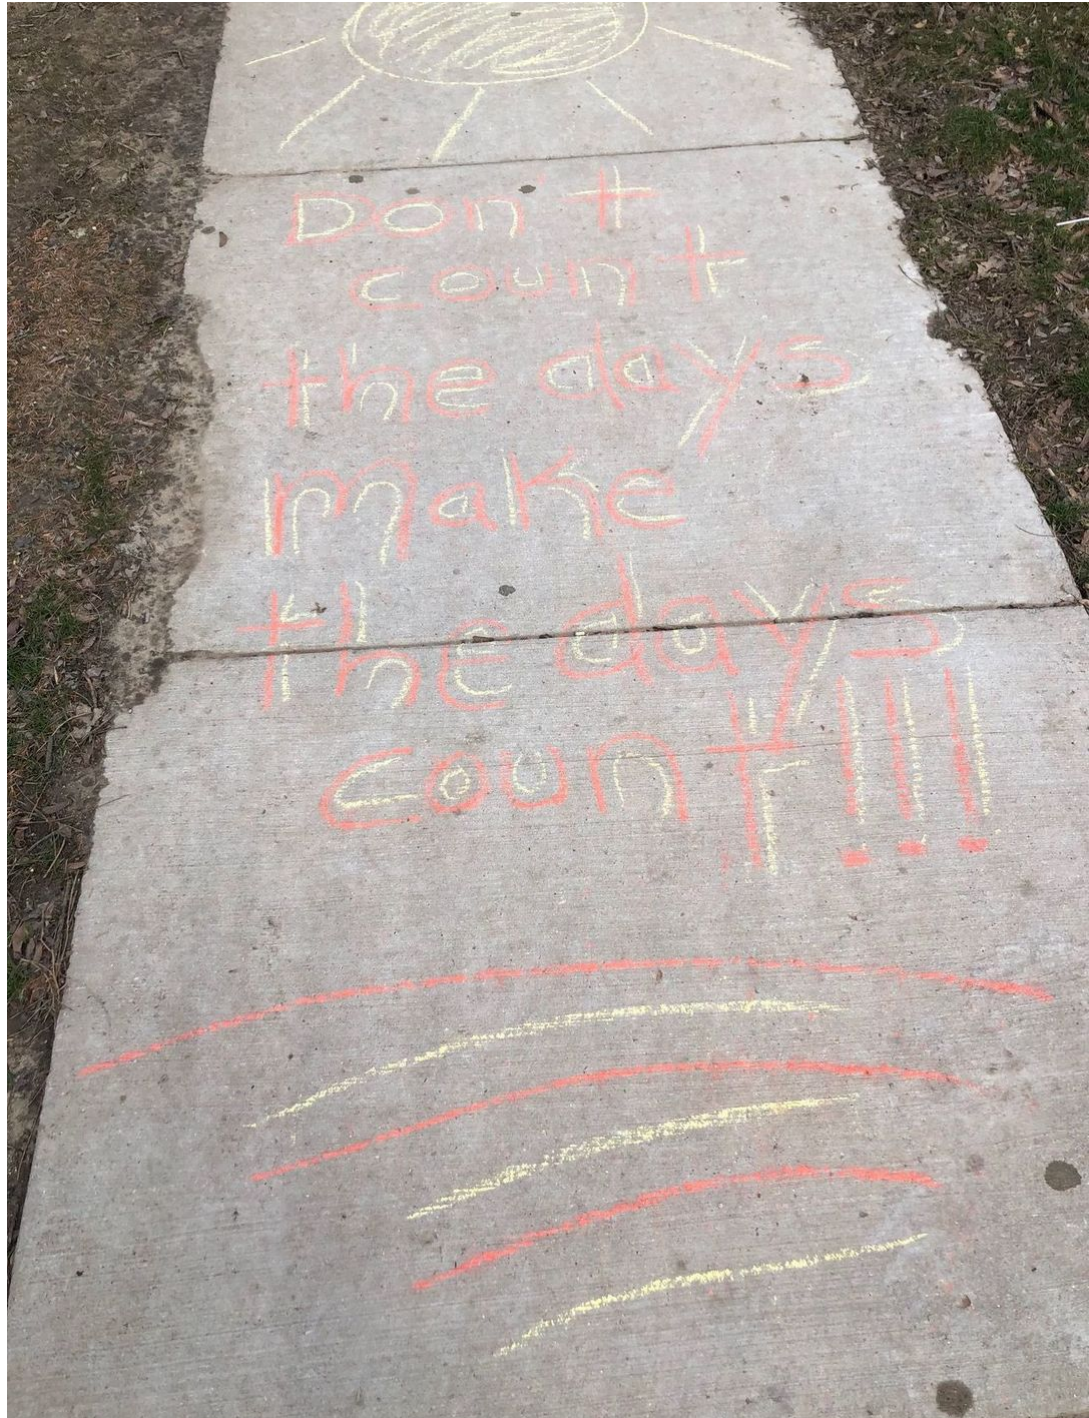 Don't
count
the days
make
the days
count!!!